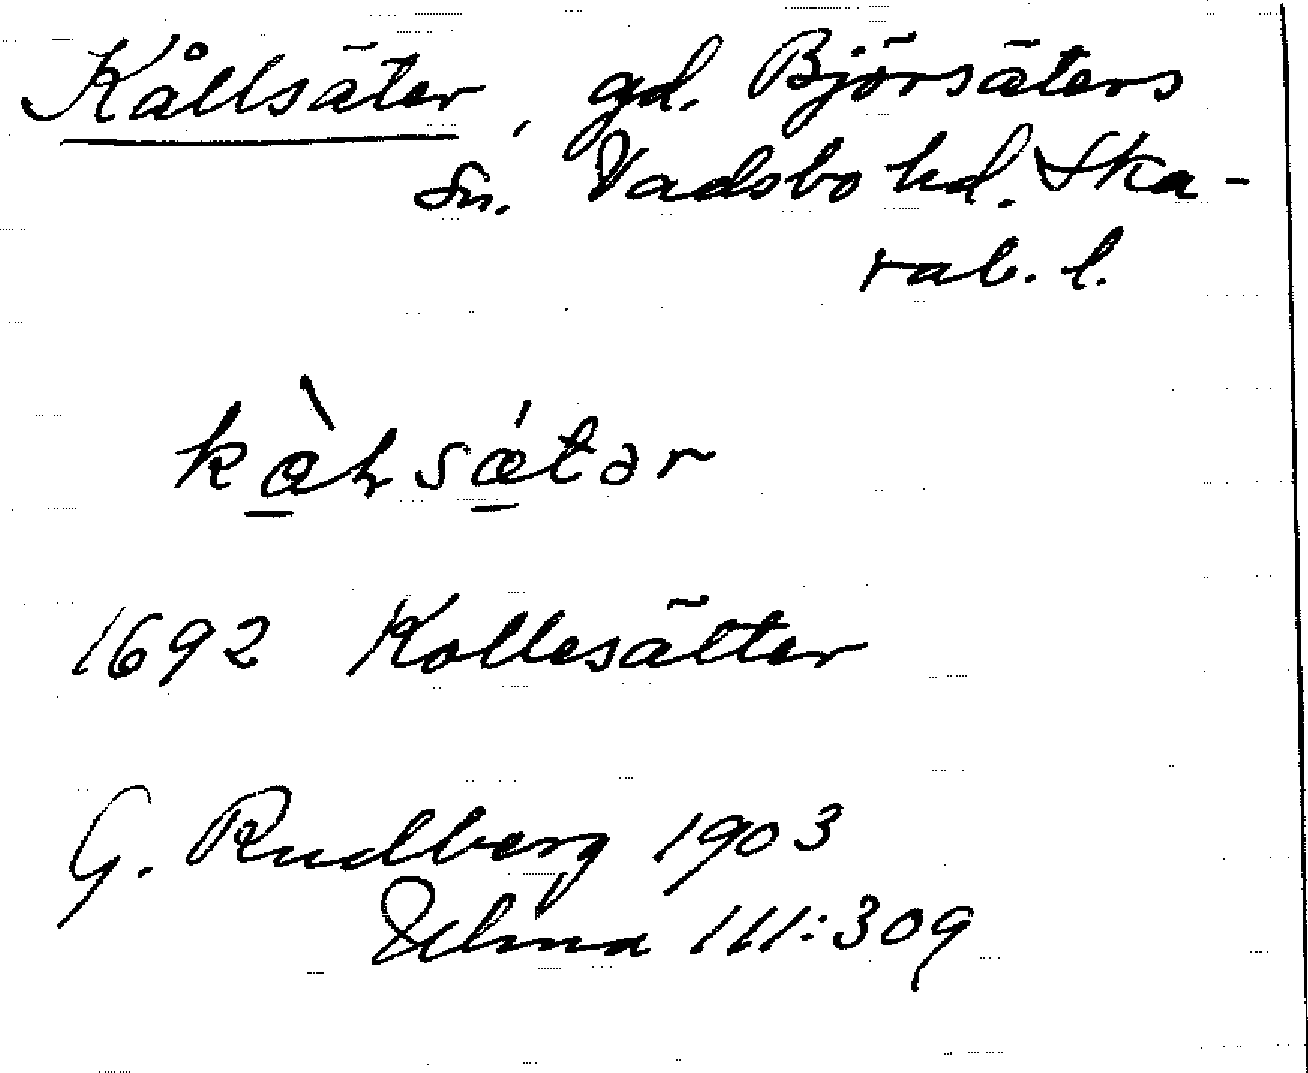 Kållsäter, gd. Björsäters
sn. Vadsbo hd. Ska-
rab. l.
kàɫsǽtər
1692 Kollesätter
G. Rudberg 1903
Ulma 111:309